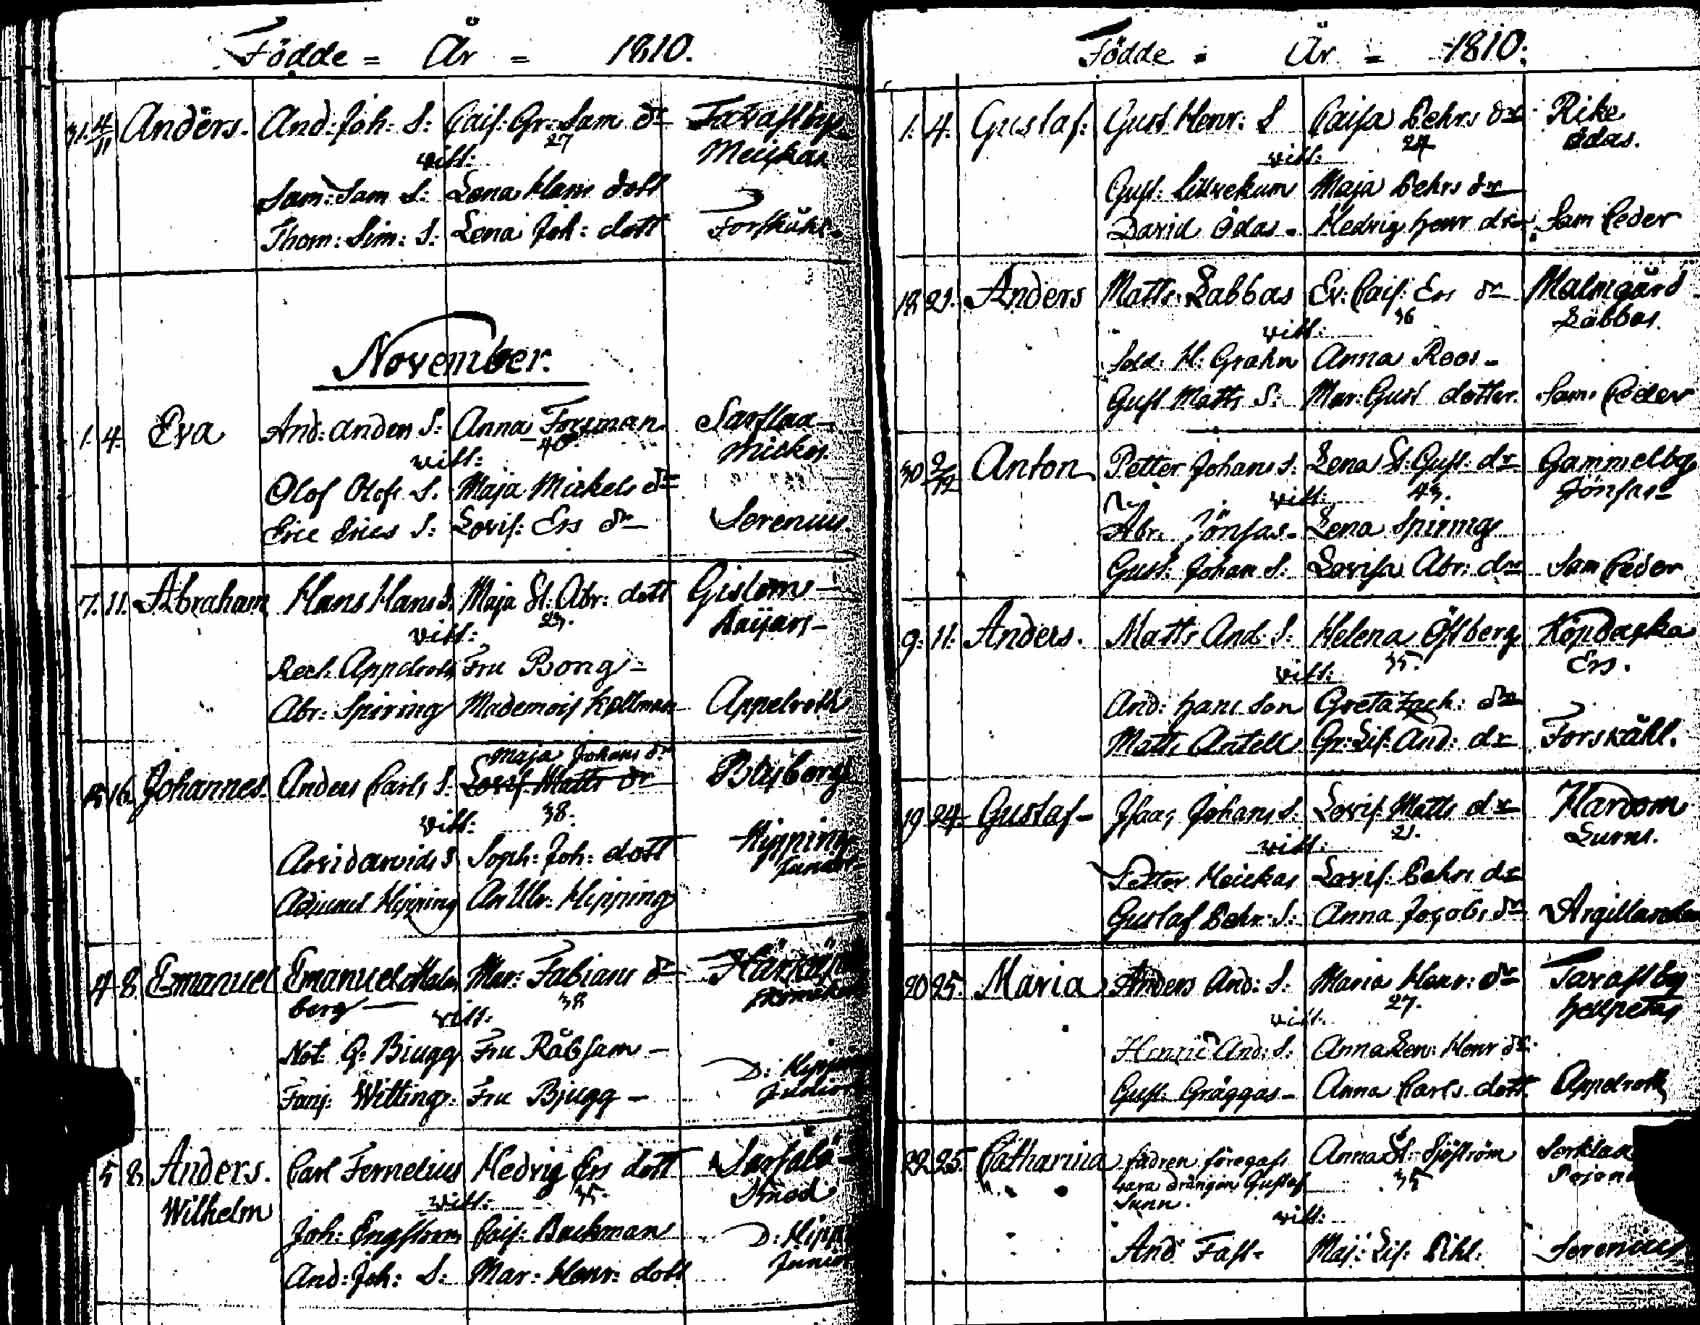 Födde = År = 1810.
31. 4/11 Anders. And: Joh: S: Cais: Gr: Sam dr Tavastby
vitt: 27 Meickas
Sam: Sam S: Lena Hans dott
Thom: Sim: S: Lena Joh: dott Forskåhl
November.
1. 4. Eva And: Anders S: Anna Forsman Sarflaa
vitt: 40 Mickos
Olof Olofs S. Maja Mickels dr
Eric Erics S: Lovis: Ers dr Serenius
7. 11. Abraham Hans Hans S. Maja St: Abr: dott Gislom
vitt: 23. Kaijars
Rech. Appelroth Fru Bong
Abr: Spiring Mademois Kollman Appelroth
Maja Johans dr
15 16 Johannes. Anders Carls S. Lovis Matts dr Bleiborg
vitt: 38.
Arvid arvids S Soph: Joh: dott Hipping
Junior
Adjunct Hipping An Ulr: Hipping
4. 8. Emanuel Emanuel Malm Mar: Fabians dr
berg vitt: 38
Not: G: Biugg Fru Råbsam D: Hipp
Fanj: Witting. Fru Bjugg Junior
5 8. Anders. Carl Fernelius Hedvig Ers dott Sarfsalö
Wilhelm vitt: 35. Knod
Joh: Engstrom Cais: Backman D: Hipp
And: Joh: S: Mar: Henr: dott Junior
Födde = År = 1810.
1. 4. Gustaf. Gust Henr: S Caisa Pehrs dr Rike
vitt: 24 Ödas.
Gust: Maja Pehrs dr
David Ödas Hedvig Henr dr Sam Ceder
18 21. Anders Matts Labbas Ev: Cais: Ers dr Malmgård
vitt: 36 Labbas.
Sold: H: Grahn Anna Roos
Gust Matts S: Mar: Gust dotter. Sam Ceder
30 2/12 Anton Petter Johans S: Lena St: Gust: dr Gammelby
vitt: 43. Jönsas
Abr: Jönsas Lena Spiring
Gust: Johan S: Lovisa Abr: dr Sam Ceder
9. 11. Anders. Matts And: S: Helena Östberg Köpbacka
vitt: 35. Ers.
And: Hans Son Greta Zach: dr
Matts Antell Gr: Lis: And: dr Forskåhl.
19 24. Gustaf Isaac Johans S. Lovis Matts dr Hardom
vitt: 21. Lurns.
Petter Meickas Lovis Pehrs dr
Gustaf Pehr: S: Anna Jacobs dr Argillander
20 25. Maria Anders And: S: Maria Henr: dr Tavastby
vitt: 27. Hellpetas
Henric And: S: Anna Len: Henr dr
Gust: Gräggas Anna Carls dott Appelroth
22 25. Catharina fadren föregafs Anna St: Sjöström
vara drängen Gustaf 35
Sunn. vitt:
And Fast Maj: Lis: Pihl. Serenius